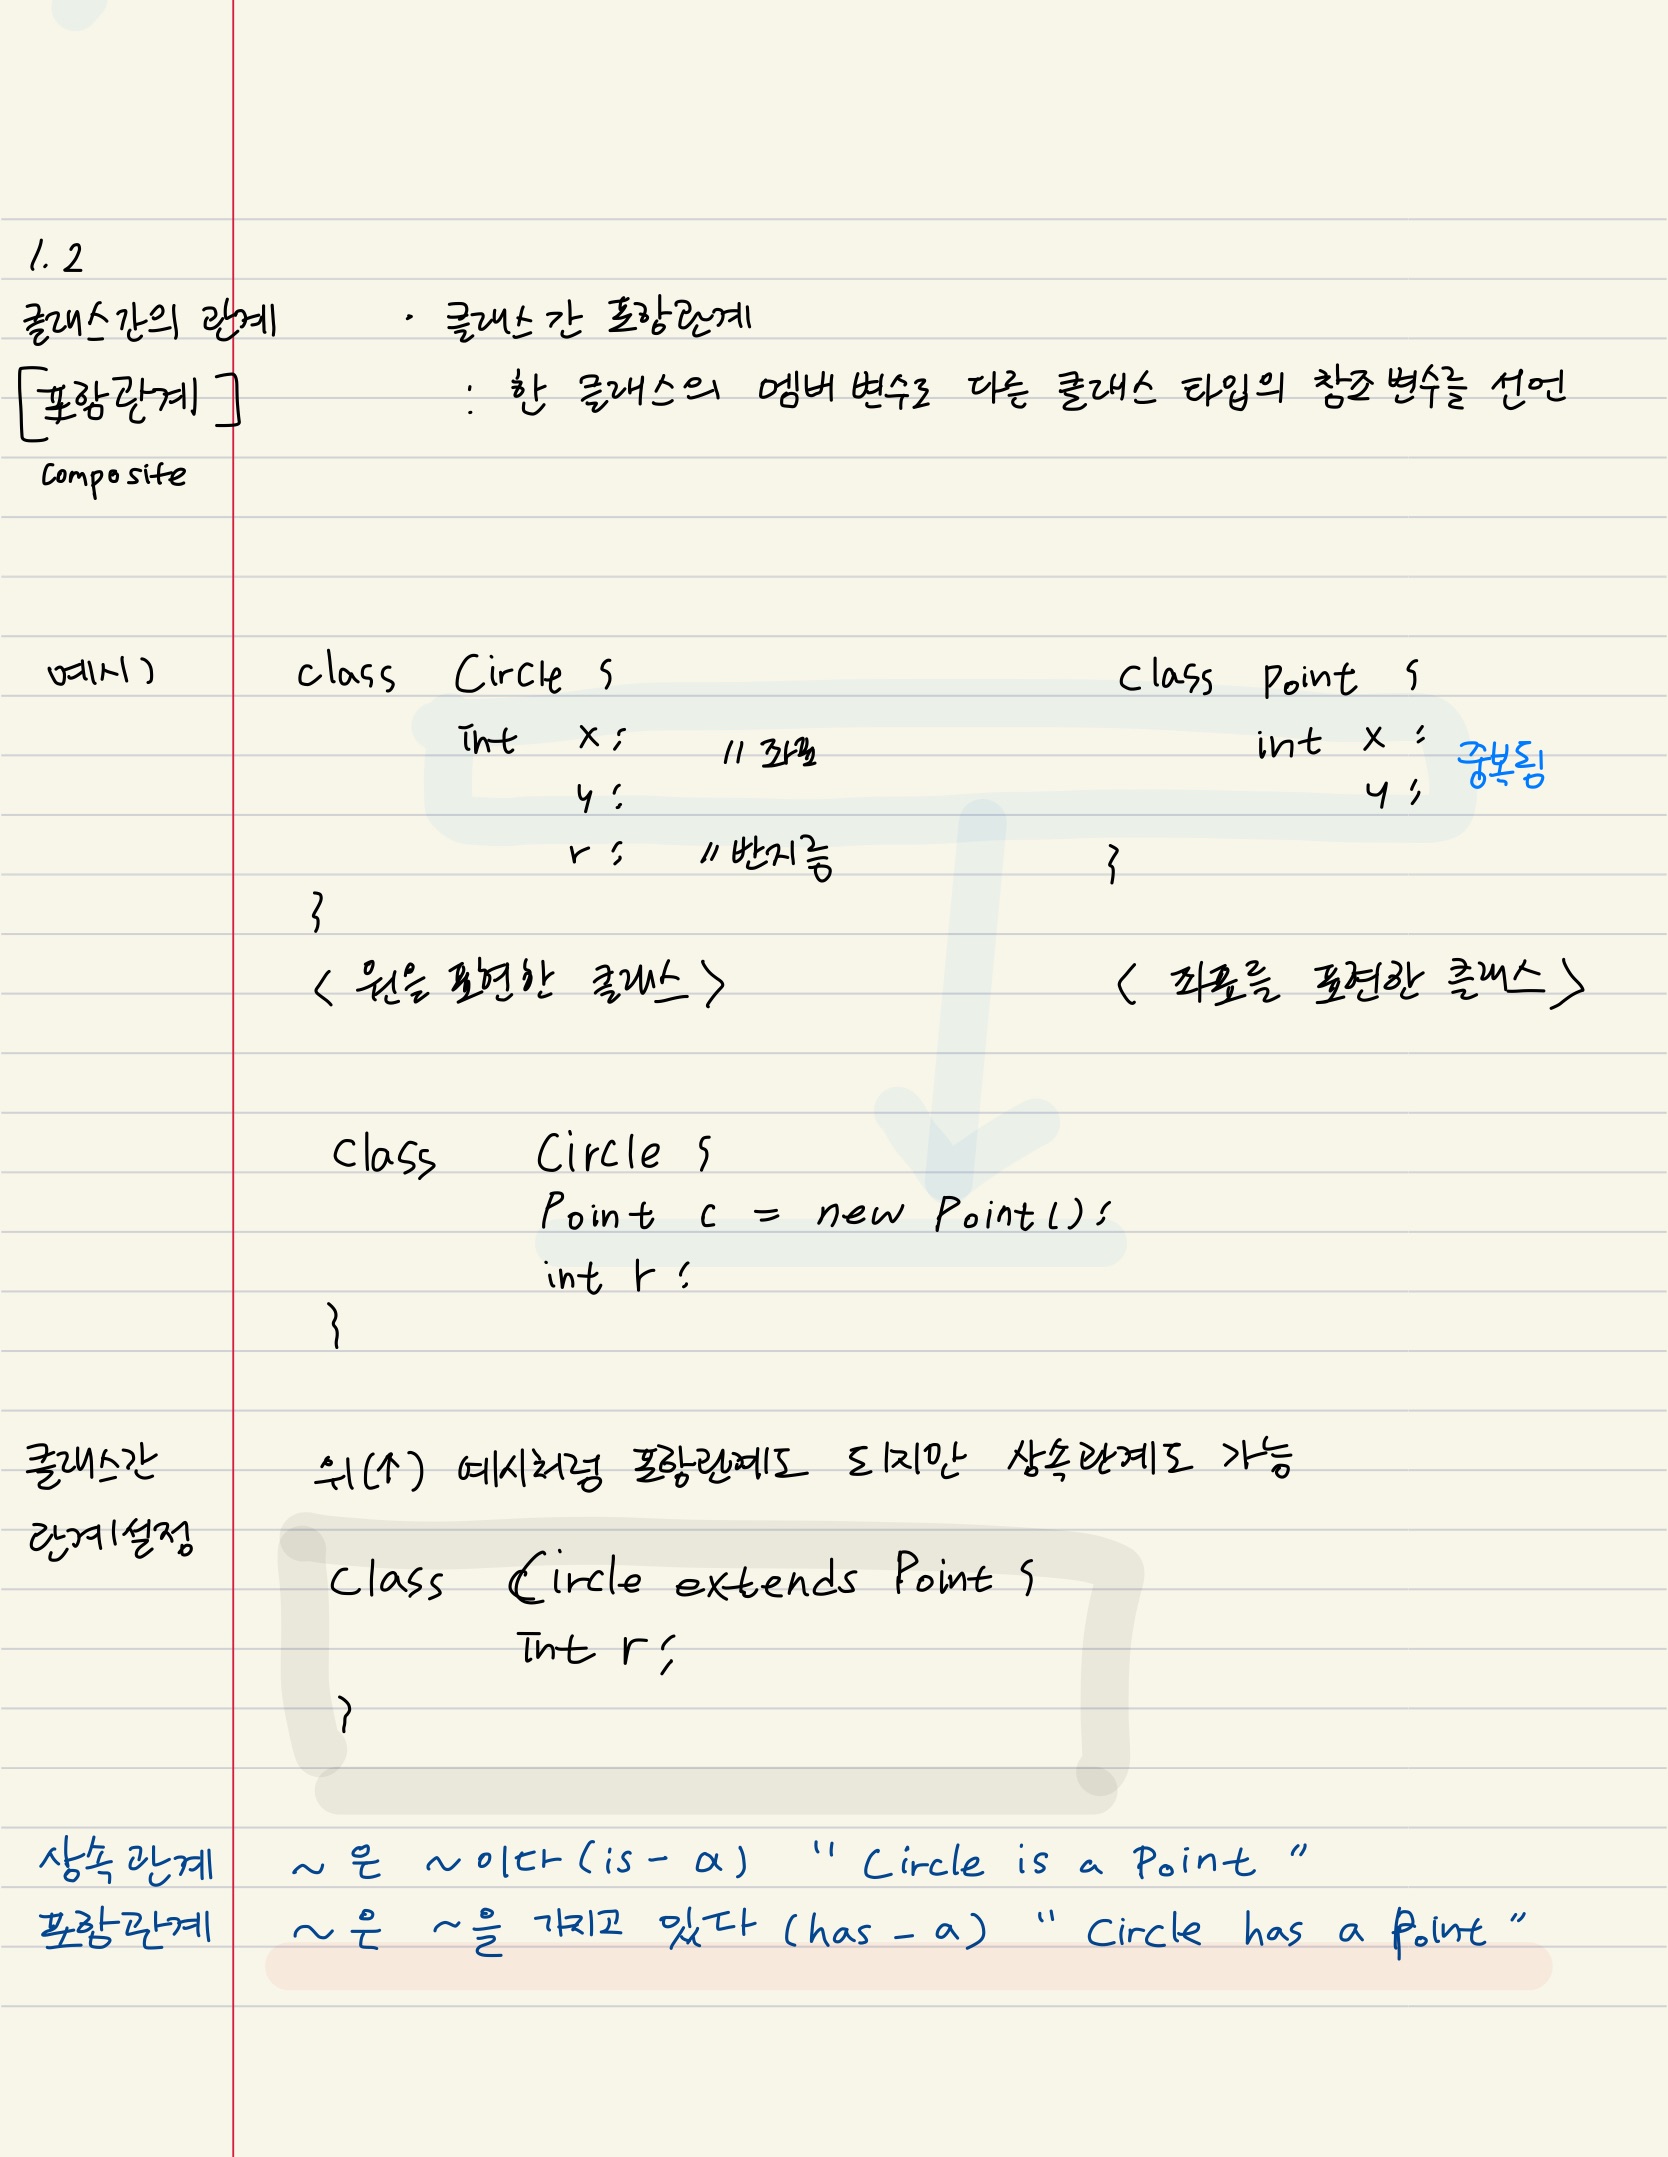 1.2
클래스간의 관계
[포함관계]
composite
· 클래스 간 포함관계
: 한 클래스의 멤버 변수로 다른 클래스 타입의 참조변수를 선언
예시)
class Circle {
int x; // 좌표
y;
r; // 반지름
}
< 원을 표현한 클래스 >
class Point {
int x;
y;
중복됨
}
< 좌표를 표현한 클래스 >
class Circle {
Point c = new Point();
int r;
}
클래스간
관계설정
위(↑) 예시처럼 포함관계도 되지만 상속관계도 가능
class Circle extends Point {
int r;
}
상속관계 ~은 ~이다 (is - a) " Circle is a Point "
포함관계 ~은 ~을 가지고 있다 (has - a) " Circle has a Point "